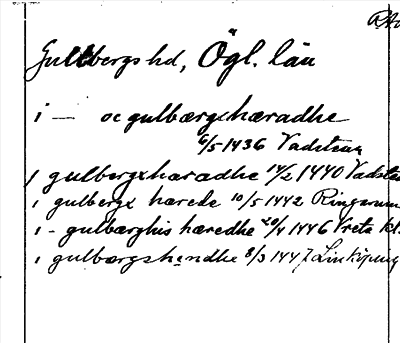 RAO
Gullbergs hd, Ögl. län
i — oc gulbærgshæradhe
6/5 1436 Vadstena
i gulbergxhæradhe 14/2 1440 Vadste
i gulbergx hærede 10/5 1442 Ringarum
i - gulbærghis hæredhe 20/4 1446 Vreta kl.
i gulbærgshæradhe 8/3 1447 Linköping